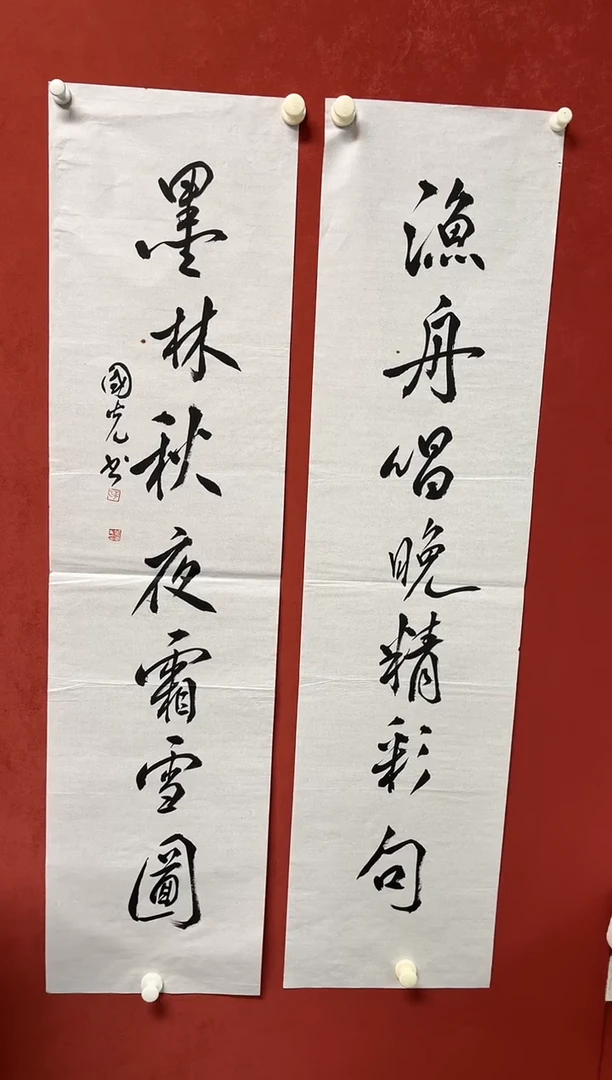 漁舟唱晚精彩句
墨林秋夜霜雪圖
國光书